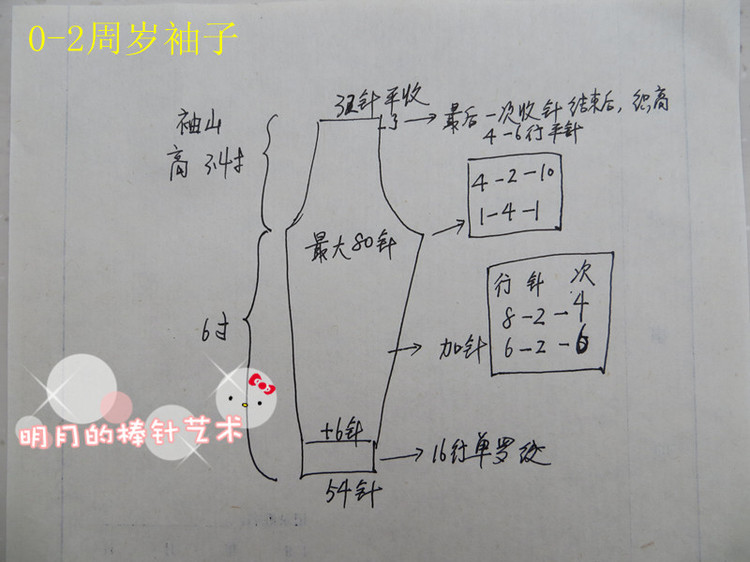 0-2周岁袖子
32针平收
3
最后一次收针结束后，织高
4-6行平针
袖山
高 3.4寸
4-2-10
1-4-1
最大80针
行 针 次
8-2-4
6-2-6
加针
6寸
明月的棒针艺术
+6针
16行单罗纹
54针